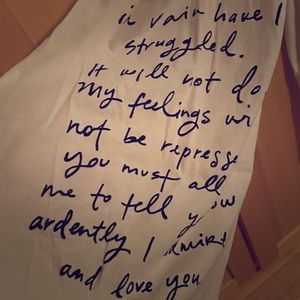 in vain have I
struggled.
it will not do
my feelings wi
not be represse
you must all
me to tell you
ardently I admire
and love you